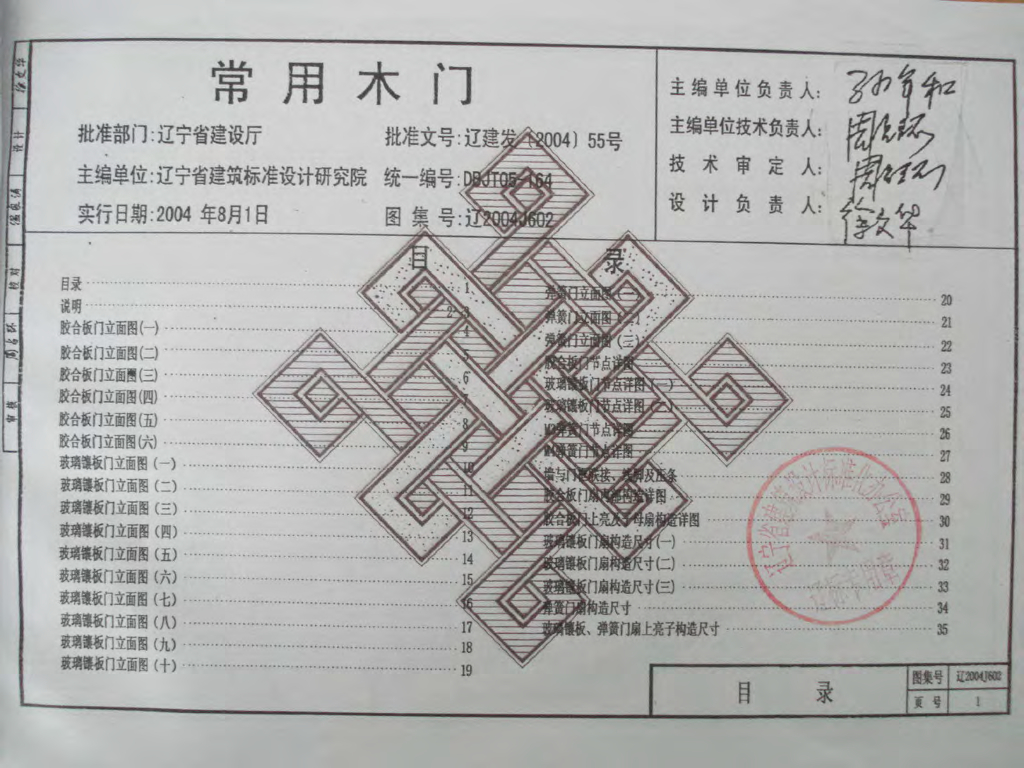 常用木门
批准部门:辽宁省建设厅
批准文号:辽建发〔2004〕55号
主编单位:辽宁省建筑标准设计研究院
统一编号:DBJT05-164
实行日期:2004 年8月1日
图集号:辽2004J602
主编单位负责人:
主编单位技术负责人:
技术审定人:
设计负责人:徐文华
目录
目录 1
说明 2-3
胶合板门立面图(一) 4
胶合板门立面图(二) 5
胶合板门立面图(三) 6
胶合板门立面图(四) 7
胶合板门立面图(五) 8
胶合板门立面图(六) 9
玻璃镶板门立面图(一) 10
玻璃镶板门立面图(二) 11
玻璃镶板门立面图(三) 12
玻璃镶板门立面图(四) 13
玻璃镶板门立面图(五) 14
玻璃镶板门立面图(六) 15
玻璃镶板门立面图(七) 16
玻璃镶板门立面图(八) 17
玻璃镶板门立面图(九) 18
玻璃镶板门立面图(十) 19
弹簧门立面图(一) 20
弹簧门立面图(二) 21
弹簧门立面图(三) 22
胶合板门节点详图 23
玻璃镶板门节点详图(一) 24
玻璃镶板门节点详图(二) 25
弹簧门节点详图 26
弹簧门节点详图 27
墙与门框联接、线脚及压条 28
胶合板门扇内部构造详图 29
胶合板门上亮及子母扇构造详图 30
玻璃镶板门扇构造尺寸(一) 31
玻璃镶板门扇构造尺寸(二) 32
玻璃镶板门扇构造尺寸(三) 33
弹簧门扇构造尺寸 34
玻璃镶板、弹簧门扇上亮子构造尺寸 35
辽宁省建筑设计标准化办公室
辽标专用章
目录
图集号 辽2004J602
页号 1
设计
校对
审核